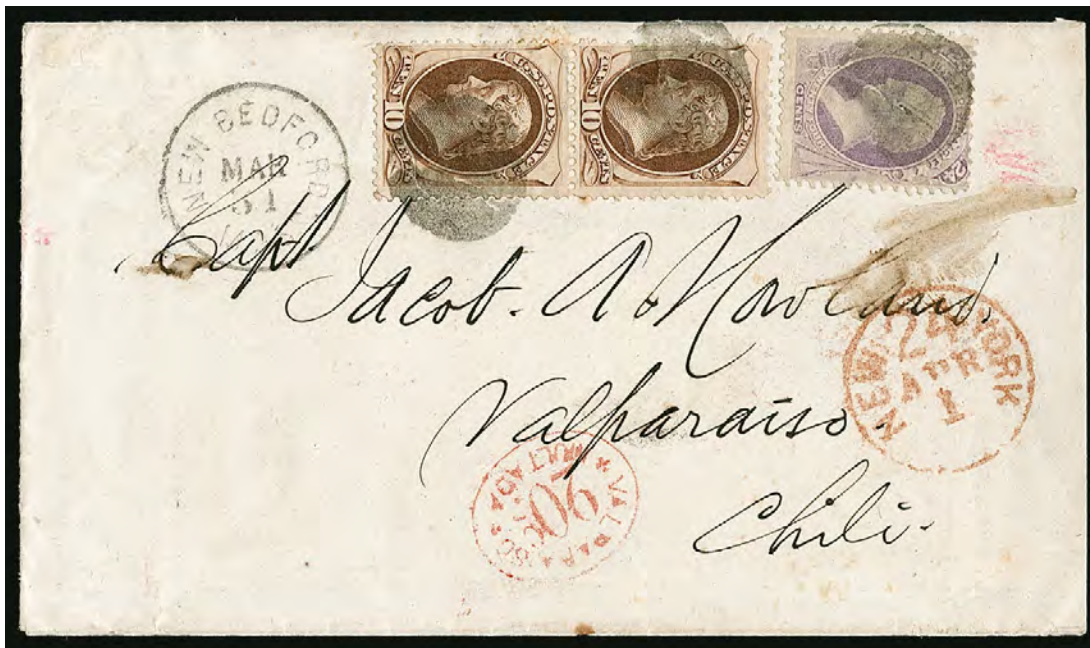 NEW BEDFORD
MAR
31
10 CENTS 10
10 CENTS 10
24
CENTS
Capt
Jacob. A. Howland.
Valparaiso.
Chili.
NEW YORK
24
APR
1
VALPARAISO
MULTADA